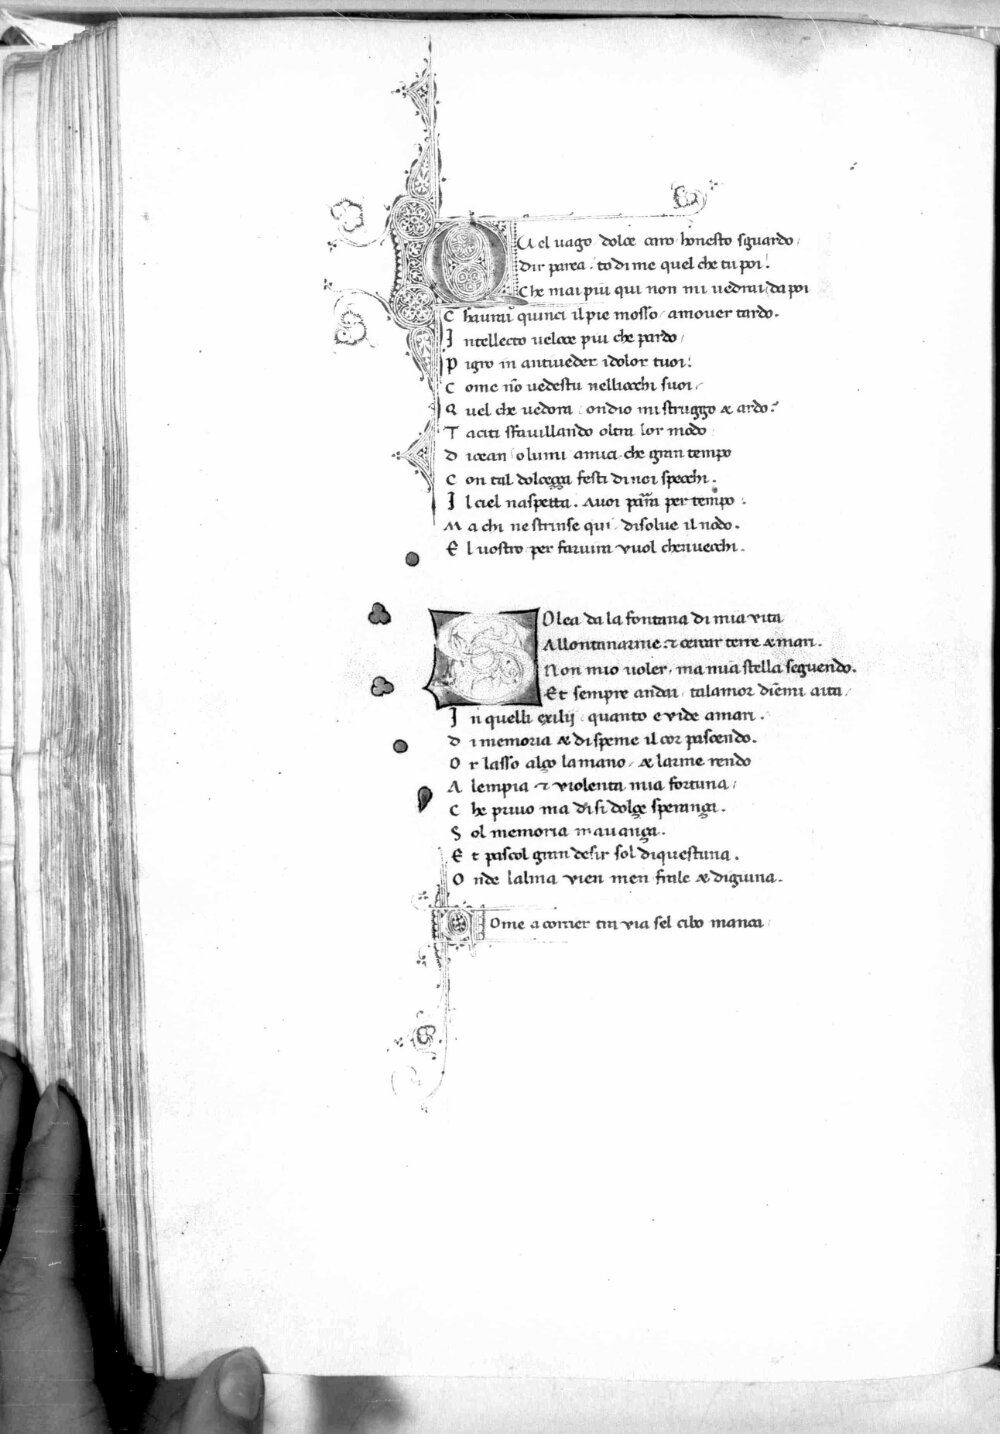 QVel uago dolce caro honesto sguardo/
Dir parea. to di me quel che tu poi!
Che mai piu qui non mi uedrai da poi
C haurai quinci il pie mosso/ a mouer tardo.
I ntellecto ueloce piu che pardo/
P igro in antiueder i dolor tuoi!
C ome nō uedestu nelliocchi suoi/
Q uel che uedi ora/ ondio mi struggo & ardo?
T aciti sfauillando oltra lor modo
D icean/ o lumi amici che gran tempo
C on tal dolceçça festi di noi specchi.
I l ciel naspetta. A uoi parra per tempo:
M a chi ne strinse qui/ disolue il nodo.
E l uostro per farui ira vuol chenuecchi.
SOlea da la fontana di mia vita
Allontanarme & cercar terre & mari.
Non mio uoler, ma mia stella seguendo.
Et sempre andai/ tal amor diemi aita/
I n quelli exilij quanto e vide amari.
D i memoria & di speme il cor pascendo.
O r lasso alço la mano/ & larme rendo
A lempia & violenta mia fortuna/
C he priuo ma di si dolçe sperança.
S ol memoria mauança.
E t pascol gran desir sol di questuna.
O nde lalma vien men frale & digiuna.
COme a corrier tra via sel cibo manca/